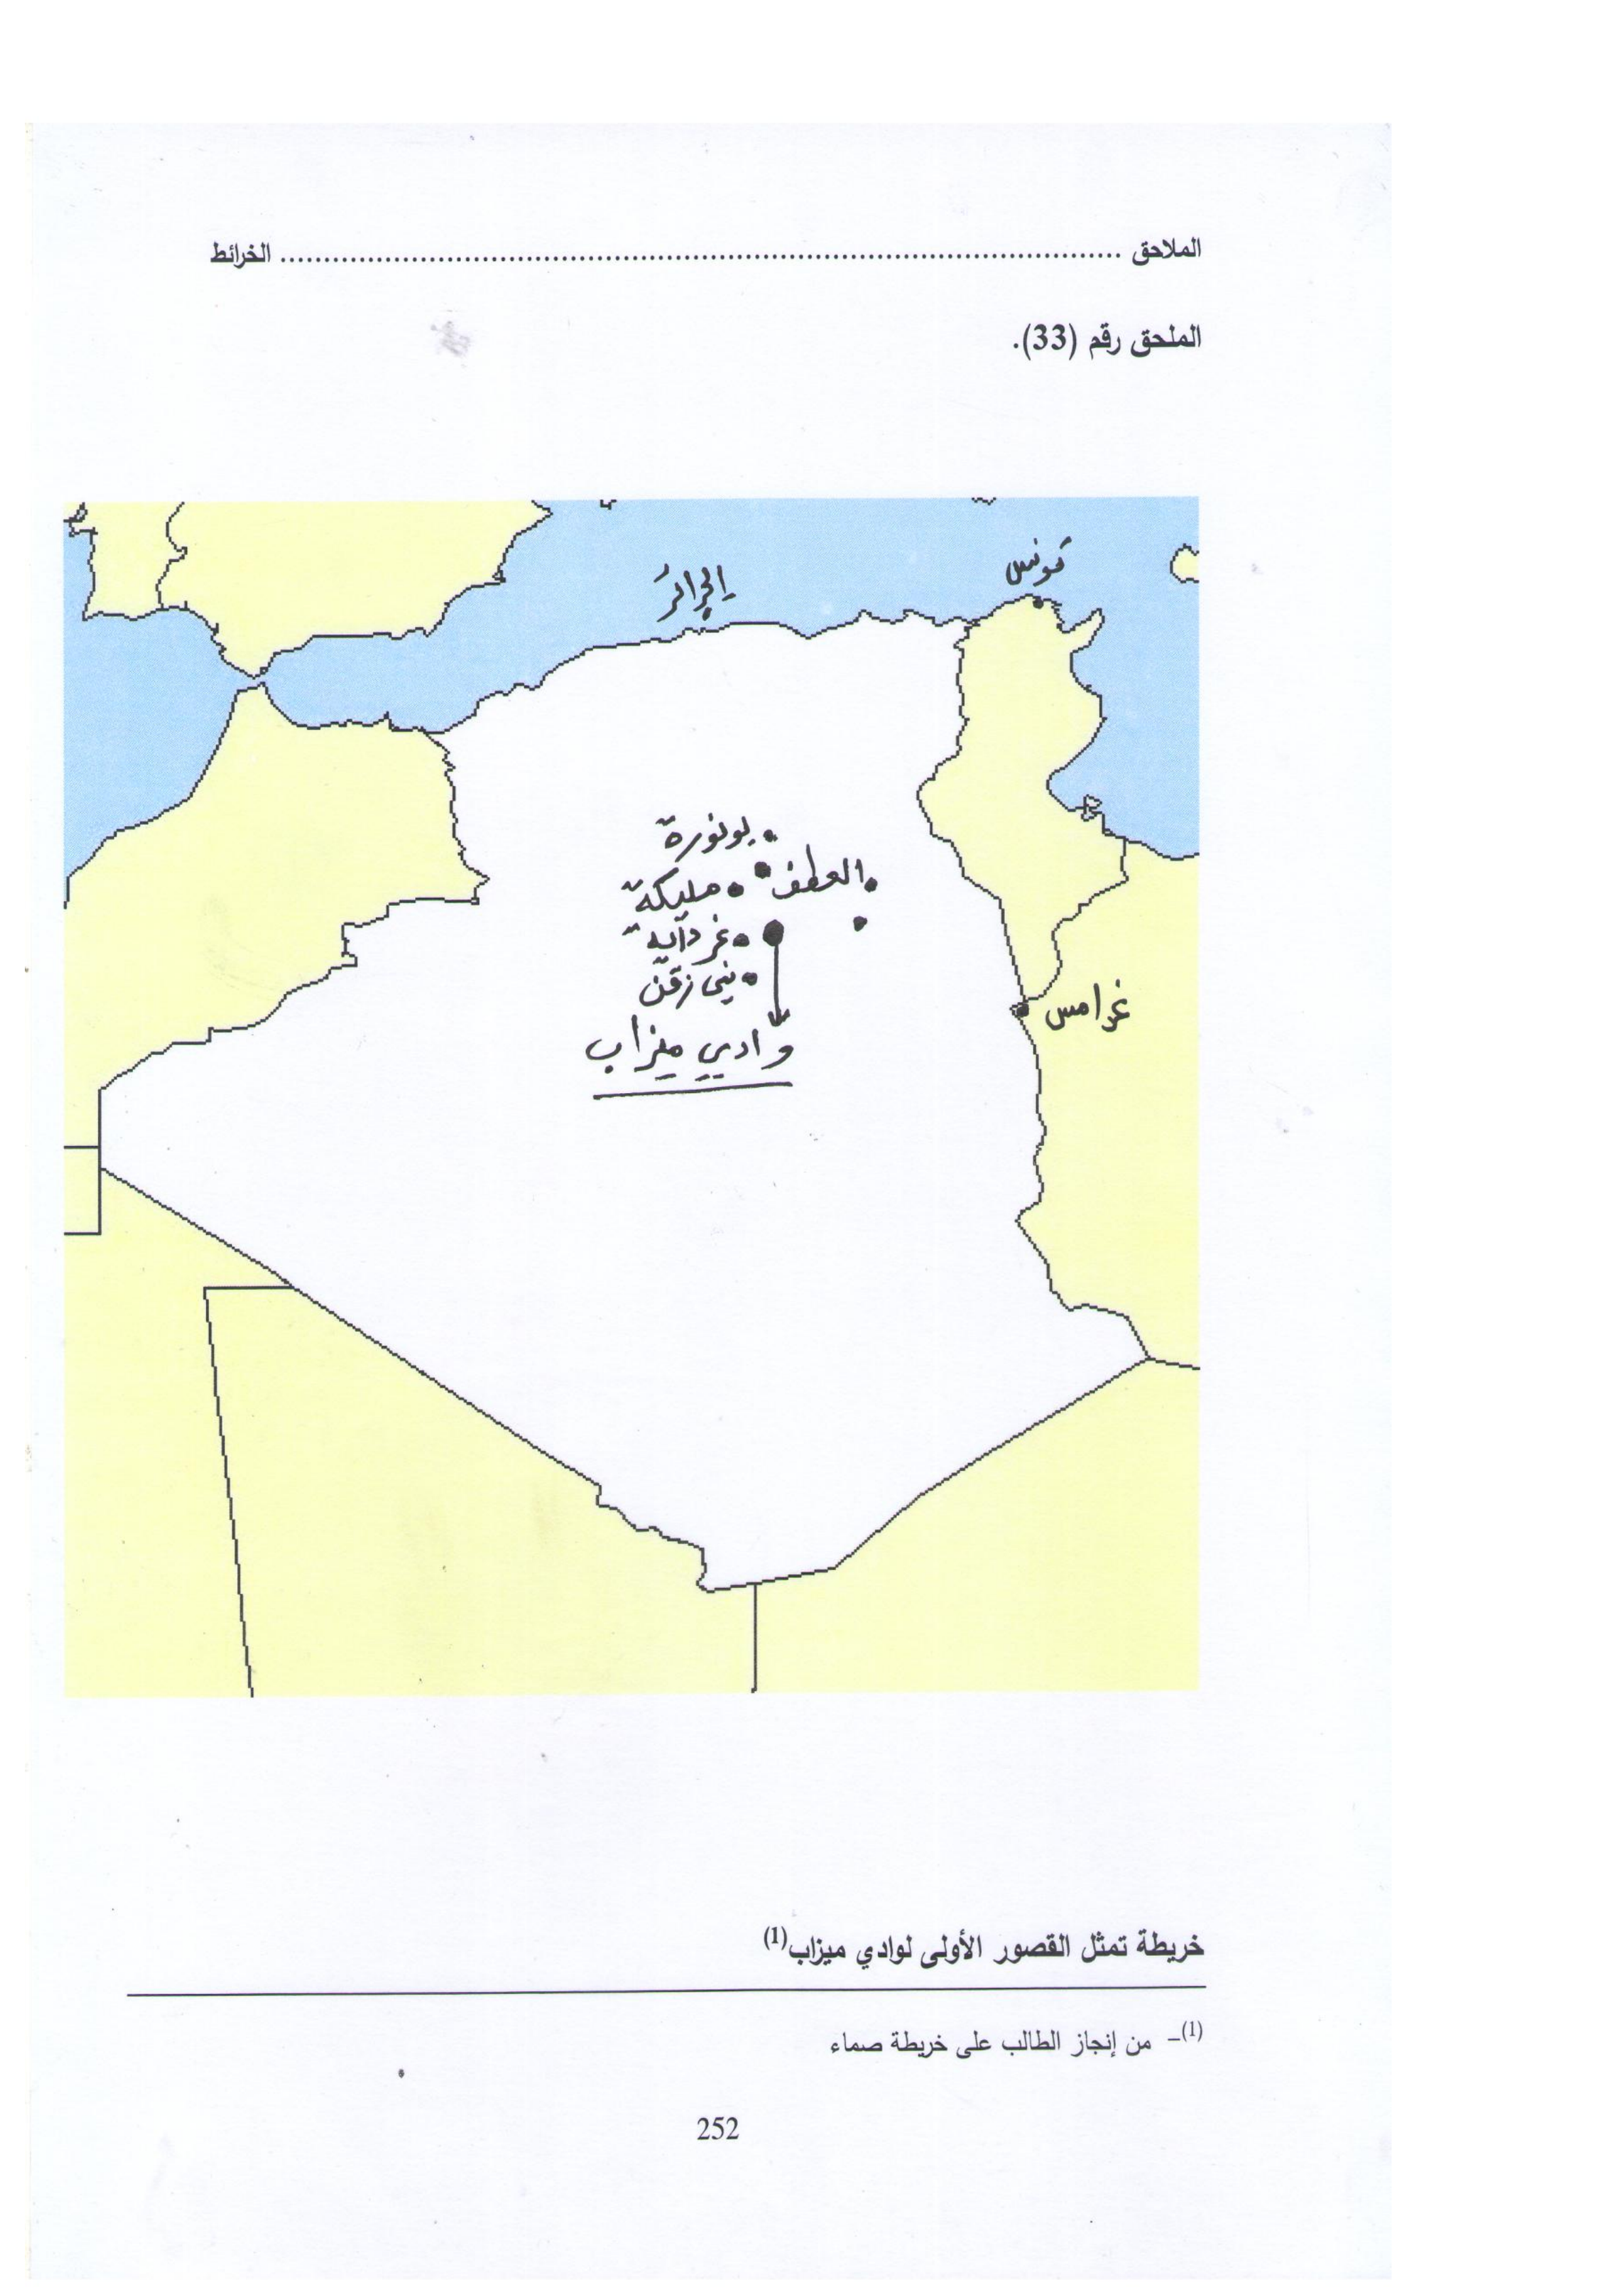 الملاحق ........................................................................................ الخرائط
الملحق رقم (33).
تونس
الجزائر
بونورة
العطف
مليكة
غرداية
بني زقن
غدامس
وادي ميزاب
خريطة تمثل القصور الأولى لوادي ميزاب(1)
(1)– من إنجاز الطالب على خريطة صماء
252